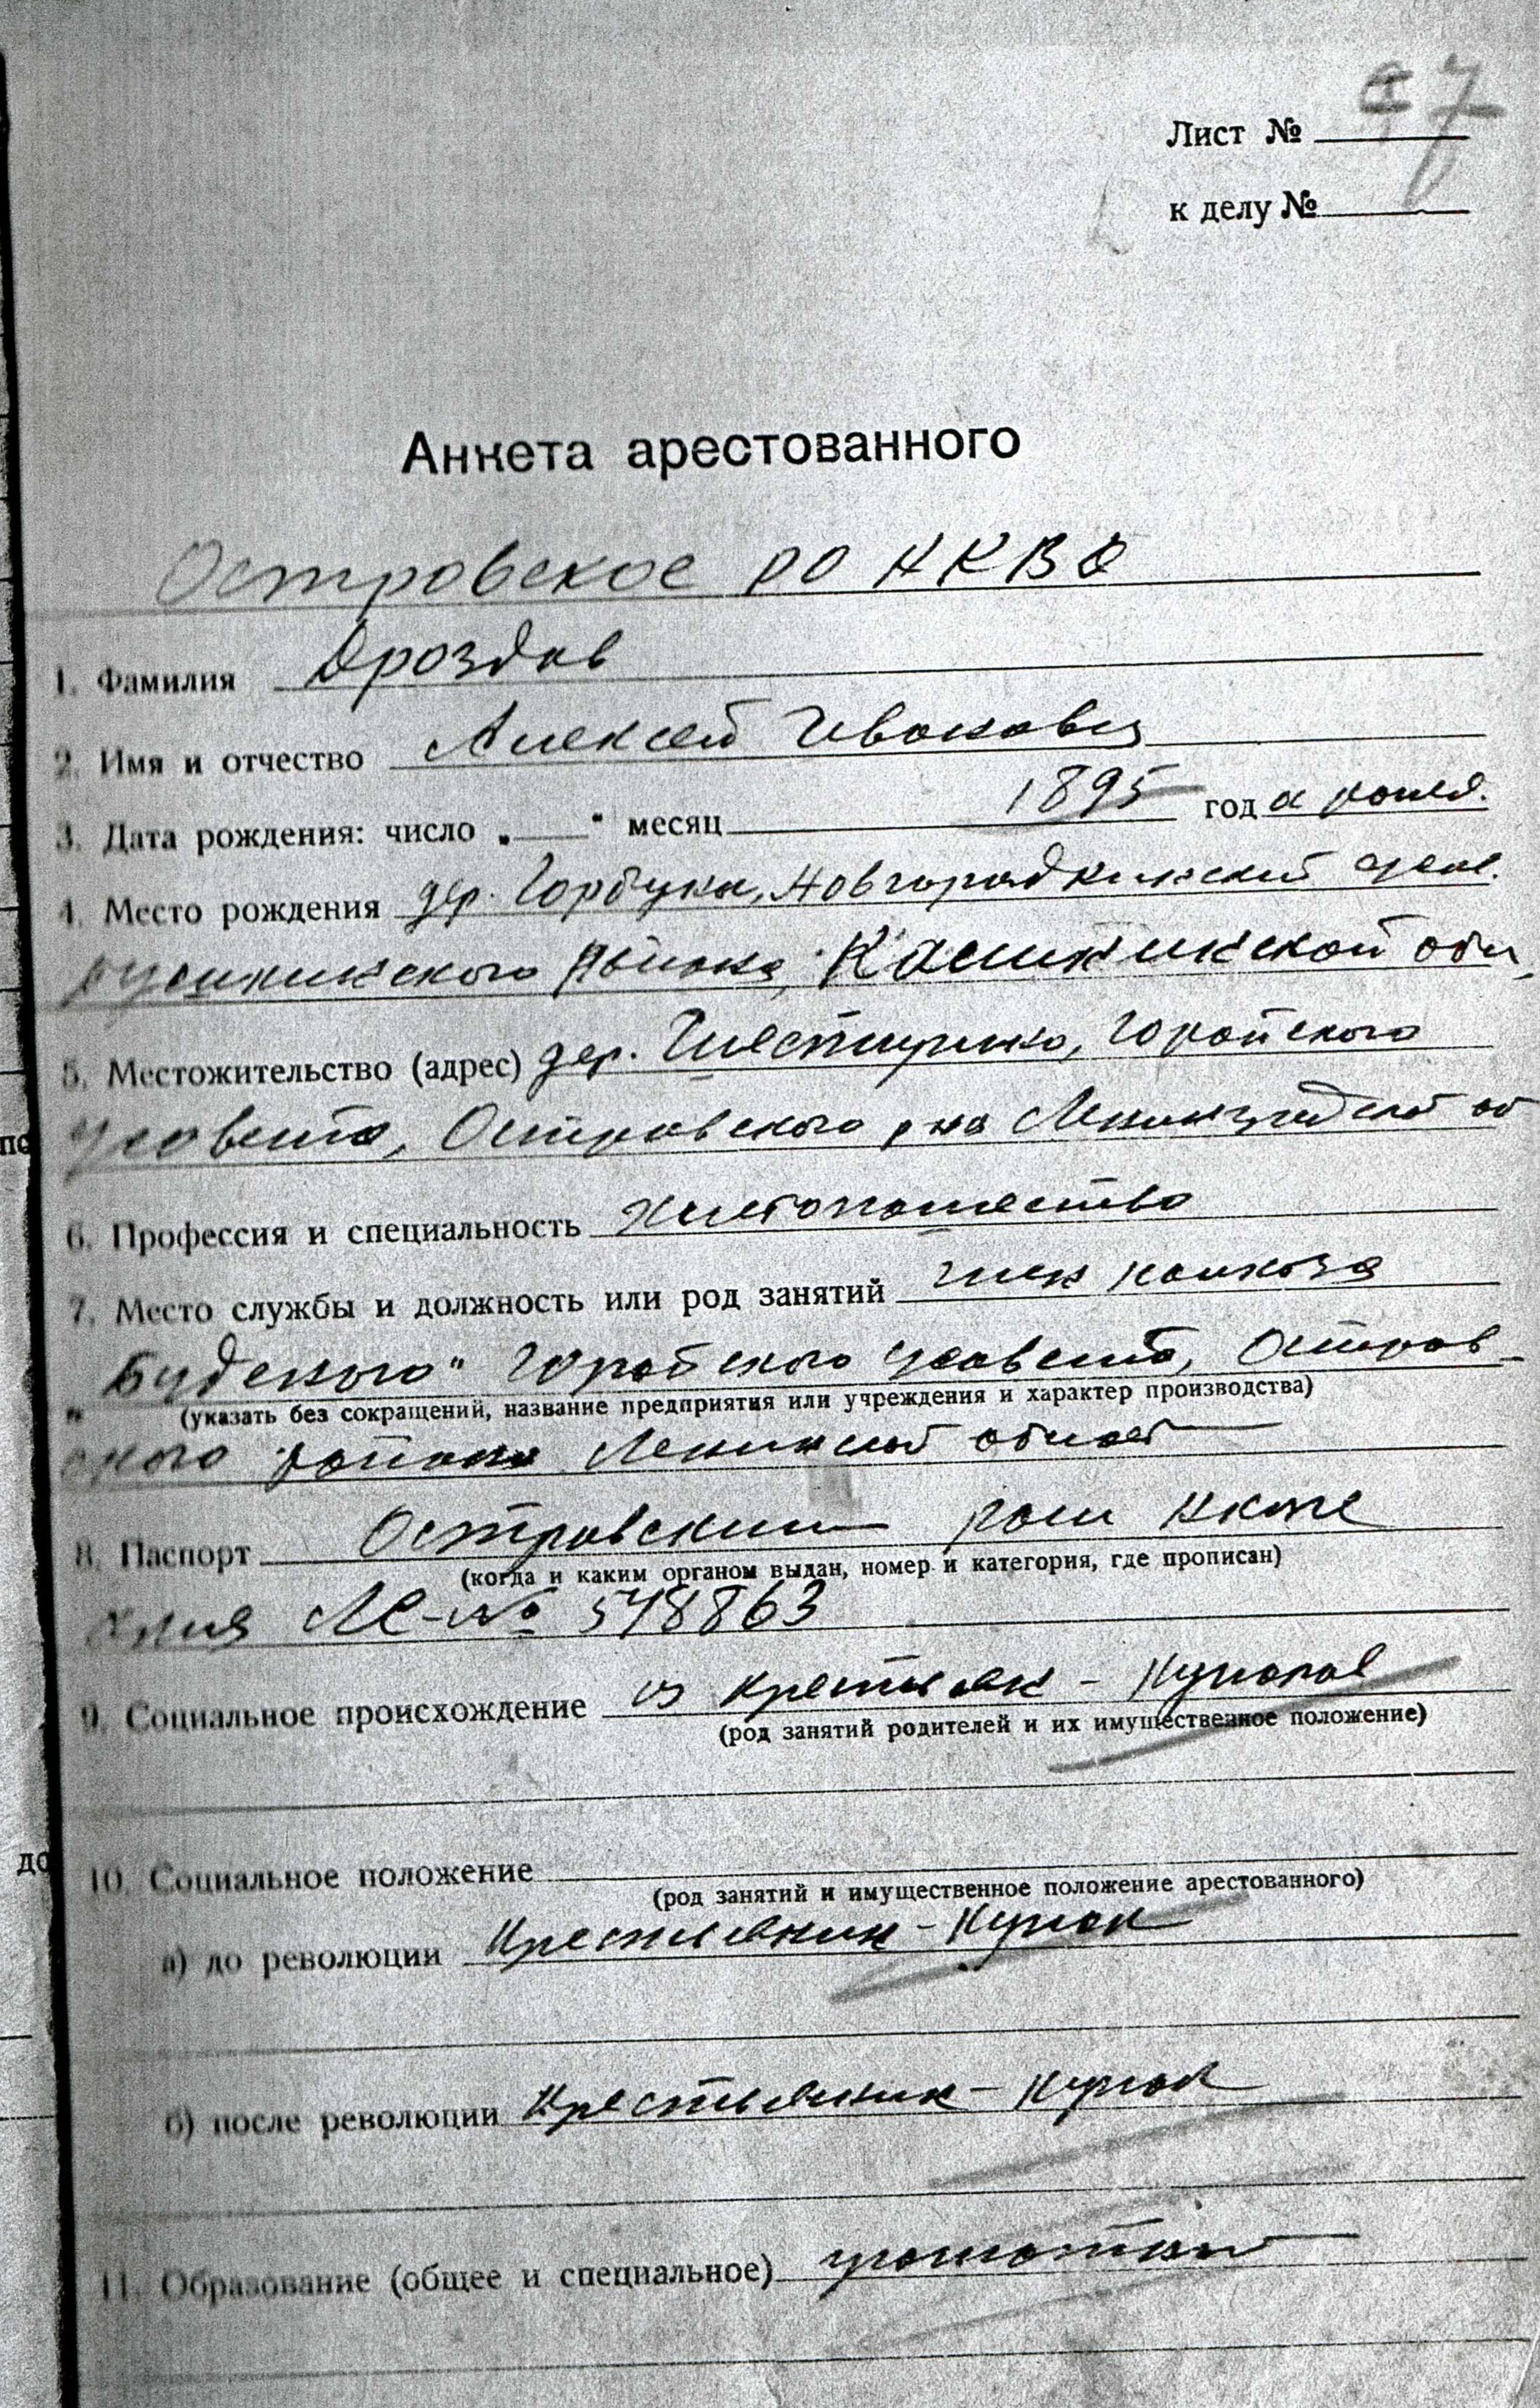 7
Лист №
к делу №
Анкета арестованного
Островское РО НКВД
1. Фамилия Дроздов
2. Имя и отчество Алексей Иванович
3. Дата рождения: число „ “ месяц 1895 год а рожд.
4. Место рождения дер. Горбуны, Новгородкинский
Пушкинского района, Калининской обл,
5. Местожительство (адрес) дер. Горайского
усовета, Островского р-на Ленинградской об
6. Профессия и специальность хлебопашество
7. Место службы и должность или род занятий член колхоза
„ Буденого" Горайского усовета, Остров-
(указать без сокращений, название предприятия или учреждения и характер производства)
ского района Ленинской област
8. Паспорт Островским
(когда и каким органом выдан, номер и категория, где прописан)
ЛС-№ 578863
9. Социальное происхождение из крестьян - кулаков
(род занятий родителей и их имущественное положение)
10. Социальное положение
(род занятий и имущественное положение арестованного)
а) до революции Крестьянин - Кулак
б) после революции Крестьянин - кулак
11. Образование (общее и специальное) грамотный
до